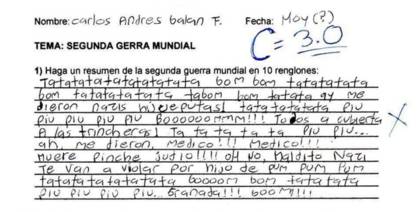 Nombre: carlos Andres balan F. Fecha: May(?)
C= 3.0
TEMA: SEGUNDA GERRA MUNDIAL
1) Haga un resumen de la segunda guerra mundial en 10 renglones:
Tatatatatatatatatata bom bom tatatatata
bom tatatatatata tabom bom tatata ay me
dieron nazis hijeputas! tatatatatata piu
piu piu piu piu Boooooommm!!! Todos a cubierta
A las trincheras! Ta ta ta ta ta Piu Piu...
ah, me dieron, Medico!!! Medico!!!
muere Pinche judio!!!! oH No, Maldito Nazi
Te van a violar por hijo de pum pum pum
tatatatatatatatata booom bom tatatata
piu piu piu piu... Granada!!! boom!!!